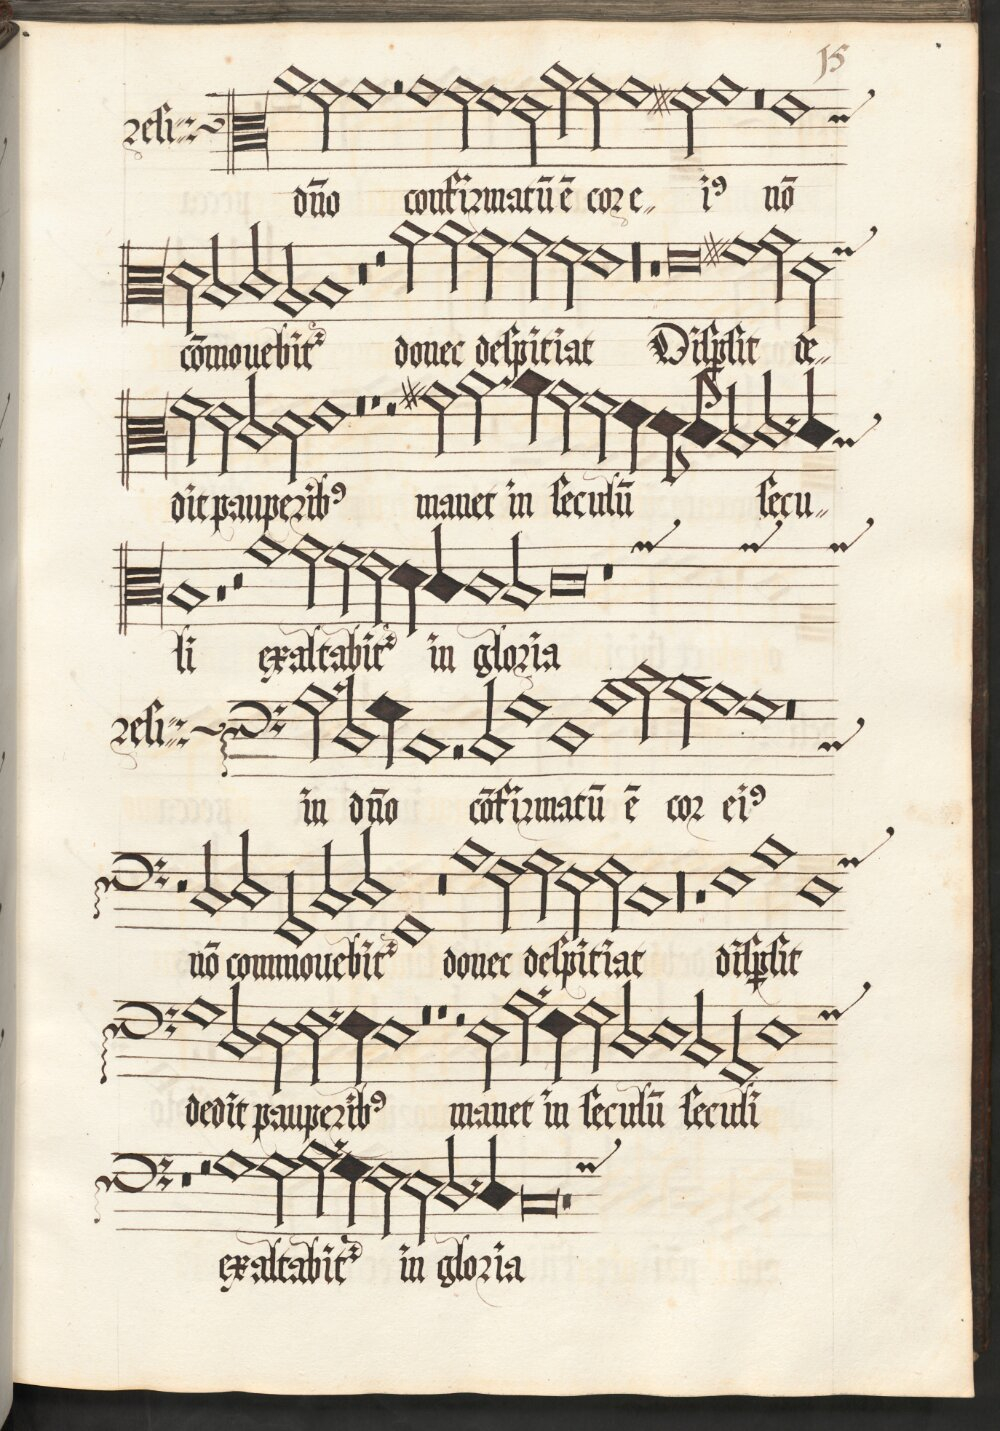 15
resi:
dño confirmatū ē cor e„ iꝰ nō
cōmovebit᷑ donec despitiat Disp̱sit de„
dit pauperibꝰ manet in seculū secu„
li exaltabit᷑ in gloria
resi:
in dño cōfirmatū ē cor eiꝰ
nō commovebit᷑ donec despitiat disp̱sit
dedit pauperibꝰ manet in seculū seculi
exaltabit᷑ in gloria